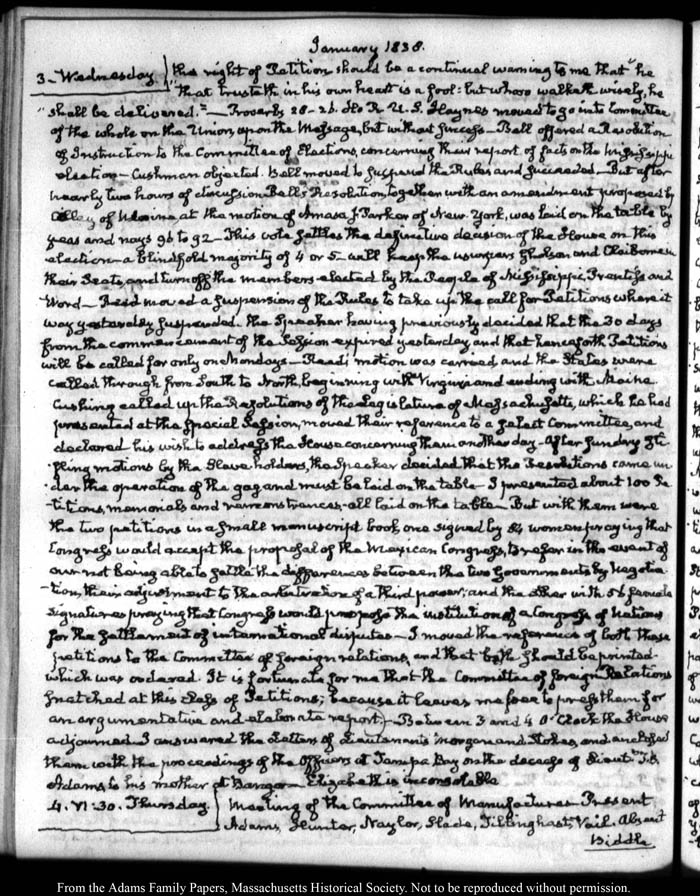 January 1838.
3. Wednesday. the right of Petition should be a continual warning to me that "he
"that trusteth in his own heart is a fool: but whoso walketh wisely, he
"shall be delivered."— Proverbs 28-26. Ho. R. U. S. Haynes moved to go into Committee
of the whole on the Union, upon the Message, but without success— Bell offered a Resolution
of Instruction to the Committee of Elections, concerning their report of facts on the Mississippi
election— Cushman objected. Bell moved to suspend the Rules and succeeded— But after
nearly two hours of discussion Bell's Resolution together with an amendment proposed by
of Maine at the motion of Amasa J. Parker of New York, was laid on the table by
yeas and nays 96 to 92— This vote settles the definitive decision of the House on this
election— a blindfold majority of 4 or 5 will keep the usurpers Gholson and Claiborne in
their Seats, and turn off the members elected by the People of Mississippi, Prentiss and
Word— Read moved a suspension of the Rules to take up the call for Petitions where it
was yesterday suspended. the Speaker having previously decided that the 30 days
from the commencement of the Session expired yesterday, and that henceforth Petitions
will be called for only on Mondays— Read's motion was carried, and the States were
called through from South to North, beginning with Virginia and ending with Maine.
Cushing called up the Resolutions of the Legislature of Massachusetts, which he had
presented at the Special Session, moved their reference to a select Committee, and
declared his wish to address the House concerning them another day— After sundry sti-
fling motions by the Slave holders, the Speaker decided that the Resolutions came un-
der the operation of the gag and must be laid on the table— I presented about 100 Pe-
titions, memorials and remonstrances— all laid on the table— But with them were
the two petitions in a small manuscript book, one signed by 84 women praying that
Congress would accept the proposal of the Mexican Congress, to refer in the event of
our not being able to settle the differences between the two Governments by Negotia-
tion, their adjustment to the arbitration of a third power; and the other with 56 female
signatures praying that Congress would propose the institution of a Congress of Nations
for the settlement of international disputes— I moved the reference of both these
petitions to the Committee of foreign relations, and that both should be printed—
which was ordered. It is fortunate for me that the Committee of foreign Relations
snatched at this class of Petitions; because it leaves me free to press them for
an argumentative and elaborate report— Between 3 and 4 O'Clock the House
adjourned. I answered the Letters of Lieutenants Morgan and Stokes, and enclosed
them with the proceedings of the Officers at Tampa Bay on the decease of Lieut. T. B.
Adams to his mother at Bangor— Elizabeth is inconsolable
4. VI:30. Thursday. Meeting of the Committee of Manufactures. Present
Adams, Hunter, Naylor, Slade, Tillinghast, Vail. Absent
Biddle
From the Adams Family Papers, Massachusetts Historical Society. Not to be reproduced without permission.